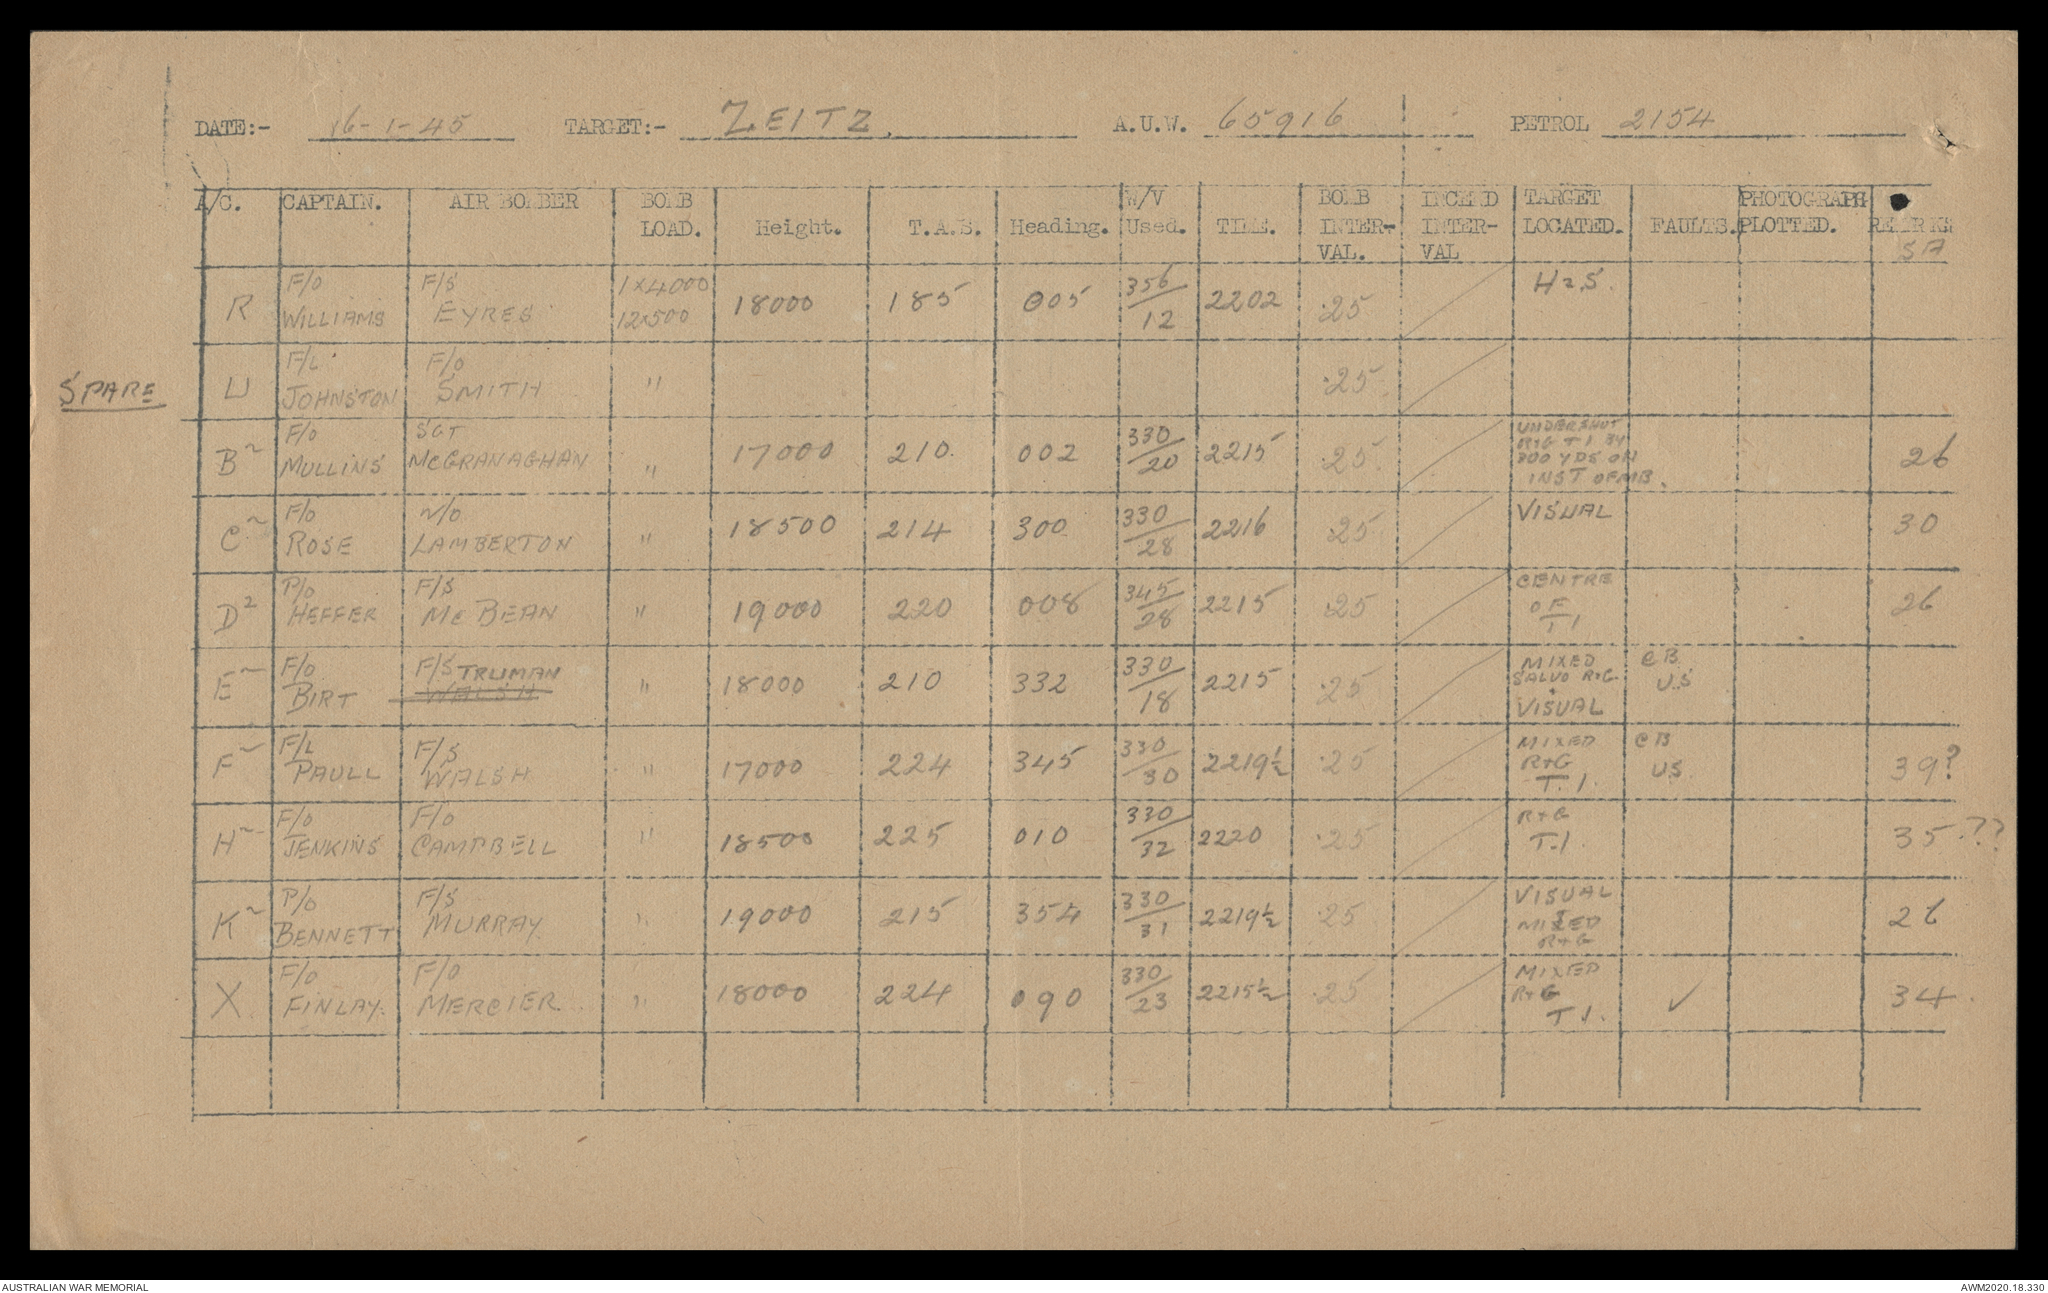 DATE:- 16-1-45 TARGET:- ZEITZ. A.U.W. 65916 PETROL 2154
A/C. CAPTAIN. AIR BOMBER BOMB LOAD. Height. T.A.S. Heading. W/V Used. TIME. BOMB INTER-VAL. INCEND INTER-VAL TARGET LOCATED. FAULTS. PHOTOGRAPH PLOTTED. REMARKS
SA
R F/O WILLIAMS F/S EYRES 1x4000 12x500 18000 185 005 356/12 2202 .25 H2S.
SPARE
U F/L JOHNSTON F/O SMITH " .25
B~ F/O MULLINS SGT McGRANAGHAN " 17000 210. 002 330/20 2215 .25 UNDERSHOT R+G T I BY 300 YDS ON INST OF MB. 26
C~ F/O ROSE W/O LAMBERTON " 18500 214 300 330/28 2216 .25 VISUAL 30
D2 P/O HEFFER F/S McBEAN " 19000 220 008 345/28 2215 .25 CENTRE OF T I 26
E~ F/O BIRT F/S TRUMAN WALSH " 18000 210 332 330/18 2215 .25 MIXED SALVO R+G. + VISUAL CB U.S
F~ F/L PAULL F/S WALSH " 17000 224 345 330/30 2219½ .25 MIXED R+G T.I. CB US 39?
H~ F/O JENKINS F/O CAMPBELL " 18500 225 010 330/32 2220 .25 R+G T.I. 35.??
K~ P/O BENNETT F/S MURRAY. " 19000 215 354 330/31 2219½ .25 VISUAL MIXED R+G 26
X F/O FINLAY. F/O MERCIER. " 18000 224 090 330/23 2215½ .25 MIXED R+G T I. ✓ 34.
AUSTRALIAN WAR MEMORIAL AWM2020.18.330